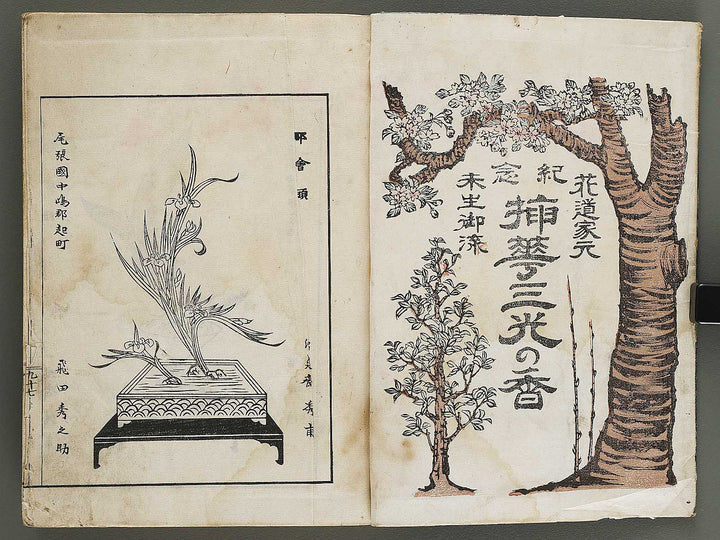 花道家元
紀念
挿華三光の香
未生御流
会頭
尾張國中嶋郡起町
飛田秀之助
九十七